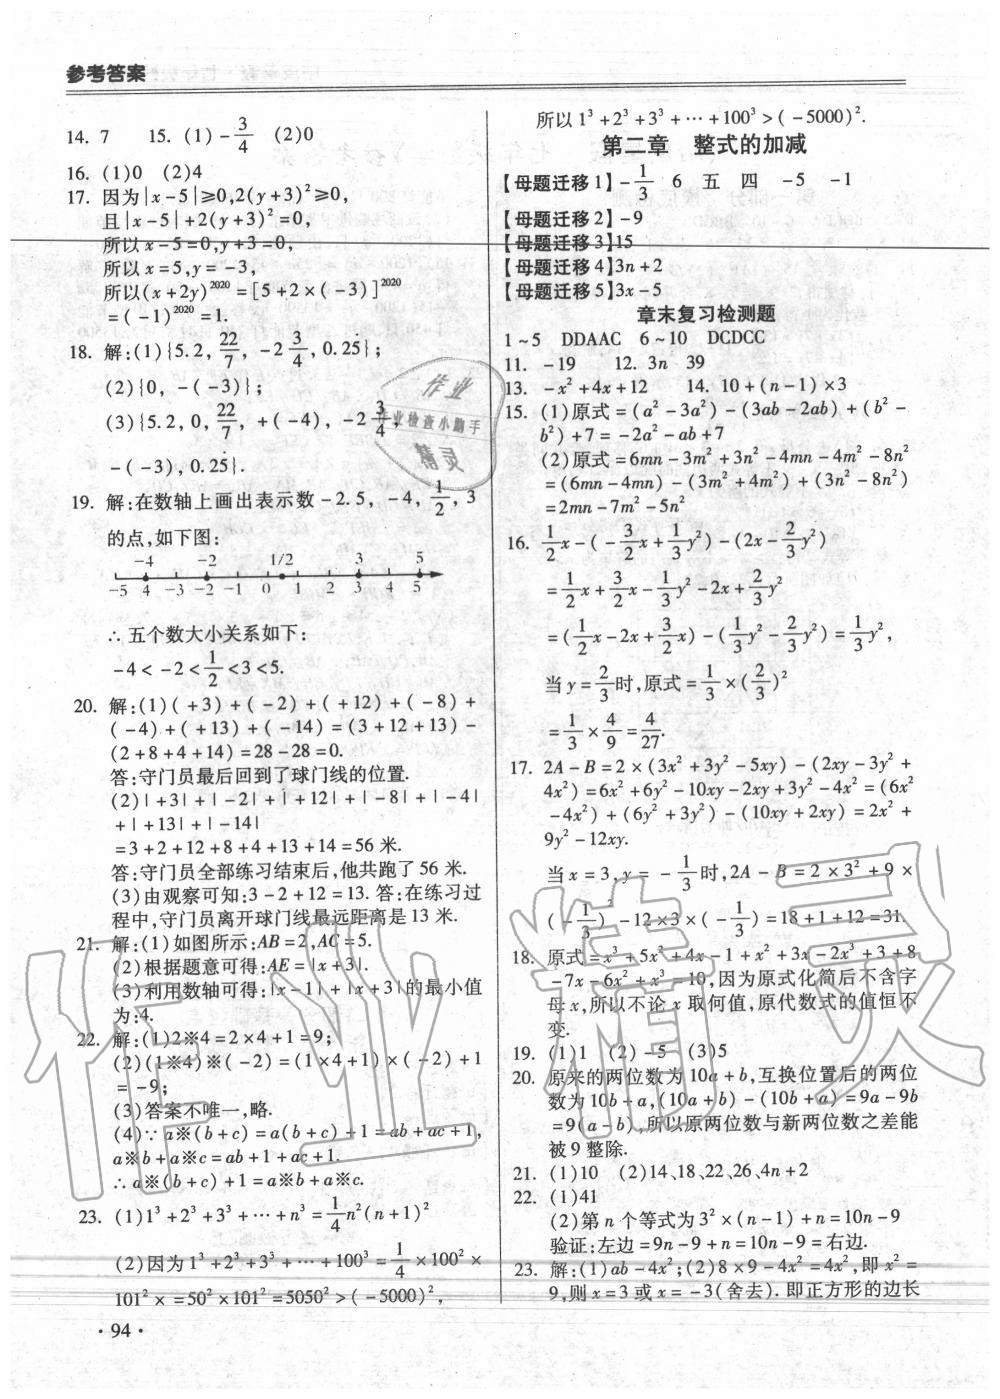 参考答案
14. 7　15. (1) -3/4　(2)0
16. (1)0　(2)4
17. 因为|x-5|≥0,2(y+3)²≥0,
且|x-5|+2(y+3)²=0,
所以x-5=0,y+3=0,
所以x=5,y=-3,
所以(x+2y)²⁰²⁰=[5+2×(-3)]²⁰²⁰
=(-1)²⁰²⁰=1.
18. 解:(1){5.2, 22/7, -2 3/4, 0.25};
(2){0, -(-3)};
(3){5.2, 0, 22/7, +(-4), -2 3/4,
-(-3), 0.25}.
19. 解:在数轴上画出表示数-2.5, -4, 1/2, 3
的点,如下图:
-4 -2 1/2 3 5
-5 4 -3 -2 -1 0 1 2 3 4 5
∴五个数大小关系如下:
-4<-2<1/2<3<5.
20. 解:(1)(+3)+(-2)+(+12)+(-8)+
(-4)+(+13)+(-14)=(3+12+13)-
(2+8+4+14)=28-28=0.
答:守门员最后回到了球门线的位置.
(2)|+3|+|-2|+|+12|+|-8|+|-4|
+|+13|+|-14|
=3+2+12+8+4+13+14=56米.
答:守门员全部练习结束后,他共跑了56米.
(3)由观察可知:3-2+12=13.答:在练习过
程中,守门员离开球门线最远距离是13米.
21. 解:(1)如图所示:AB=2,AC=5.
(2)根据题意可得:AE=|x+3|.
(3)利用数轴可得:|x-1|+|x+3|的最小值
为:4.
22. 解:(1)2※4=2×4+1=9;
(2)(1※4)※(-2)=(1×4+1)×(-2)+1
=-9;
(3)答案不唯一,略.
(4)∵a※(b+c)=a(b+c)+1=ab+ac+1,
a※b+a※c=ab+1+ac+1.
∴a※(b+c)+1=a※b+a※c.
23. (1)1³+2³+3³+…+n³=1/4n²(n+1)²
(2)因为1³+2³+3³+…+100³=1/4×100²×
101²×=50²×101²=5050²>(-5000)²,
·94·
所以1³+2³+3³+…+100³>(-5000)².
第二章　整式的加减
【母题迁移1】-1/3　6　五　四　-5　-1
【母题迁移2】-9
【母题迁移3】15
【母题迁移4】3n+2
【母题迁移5】3x-5
章末复习检测题
1~5　DDAAC　6~10　DCDCC
11. -19　12. 3n　39
13. -x²+4x+12　14. 10+(n-1)×3
15. (1)原式=(a²-3a²)-(3ab-2ab)+(b²-
b²)+7=-2a²-ab+7
(2)原式=6mn-3m²+3n²-4mn-4m²-8n²
=(6mn-4mn)-(3m²+4m²)+(3n²-8n²)
=2mn-7m²-5n²
16. 1/2x-(-3/2x+1/3y²)-(2x-2/3y²)
=1/2x+3/2x-1/3y²-2x+2/3y²
=(1/2x-2x+3/2x)-(1/3y²-2/3y²)=1/3y²,
当y=2/3时,原式=1/3×(2/3)²
=1/3×4/9=4/27.
17. 2A-B=2×(3x²+3y²-5xy)-(2xy-3y²+
4x²)=6x²+6y²-10xy-2xy+3y²-4x²=(6x²
-4x²)+(6y²+3y²)-(10xy+2xy)=2x²+
9y²-12xy.
当x=3,y=-1/3时,2A-B=2×3²+9×
(-1/3)²-12×3×(-1/3)=18+1+12=31.
18. 原式=x³+5x²+4x-1+x²+3x-2x³+3+8
-7x-6x²+x³=10,因为原式化简后不含字
母x,所以不论x取何值,原代数式的值恒不
变.
19. (1)1　(2)-5　(3)5
20. 原来的两位数为10a+b,互换位置后的两位
数为10b+a,(10a+b)-(10b+a)=9a-9b
=9(a-b),所以原两位数与新两位数之差能
被9整除.
21. (1)10　(2)14、18、22、26、4n+2
22. (1)41
(2)第n个等式为3²×(n-1)+n=10n-9
验证:左边=9n-9+n=10n-9=右边.
23. 解:(1)ab-4x²;(2)8×9-4x²=4x²,即x²=
9,所以x=3或x=-3(舍去).即正方形的边长
作业
作业检查小助手
精灵
作业精灵